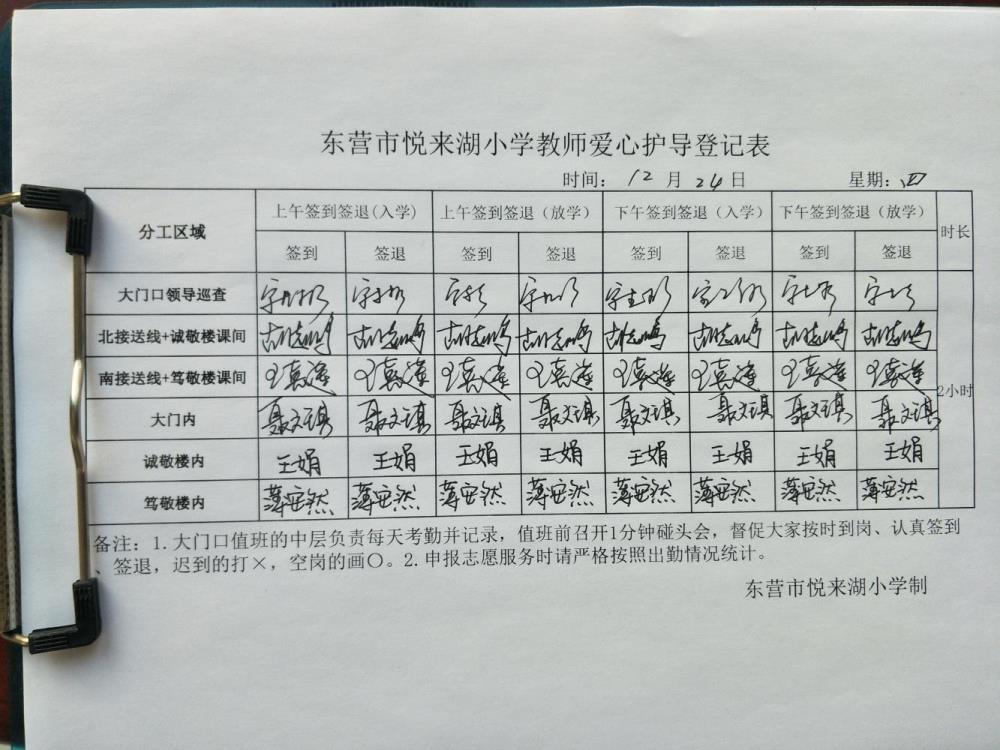 东营市悦来湖小学教师爱心护导登记表
时间: 12 月 24 日 星期: 四
分工区域 上午签到签退(入学) 上午签到签退（放学） 下午签到签退（入学） 下午签到签退（放学） 时长
签到 签退 签到 签退 签到 签退 签到 签退
大门口领导巡查
北接送线+诚敬楼课间
南接送线+笃敬楼课间
2小时
大门内 聂文琪 聂文琪 聂文琪 聂文琪 聂文琪 聂文琪 聂文琪 聂文琪
诚敬楼内 王娟 王娟 王娟 王娟 王娟 王娟 王娟 王娟
笃敬楼内 薄安然 薄安然 薄安然 薄安然 薄安然 薄安然 薄安然 薄安然
备注：1.大门口值班的中层负责每天考勤并记录，值班前召开1分钟碰头会，督促大家按时到岗、认真签到
、签退，迟到的打×，空岗的画〇。2.申报志愿服务时请严格按照出勤情况统计。
东营市悦来湖小学制